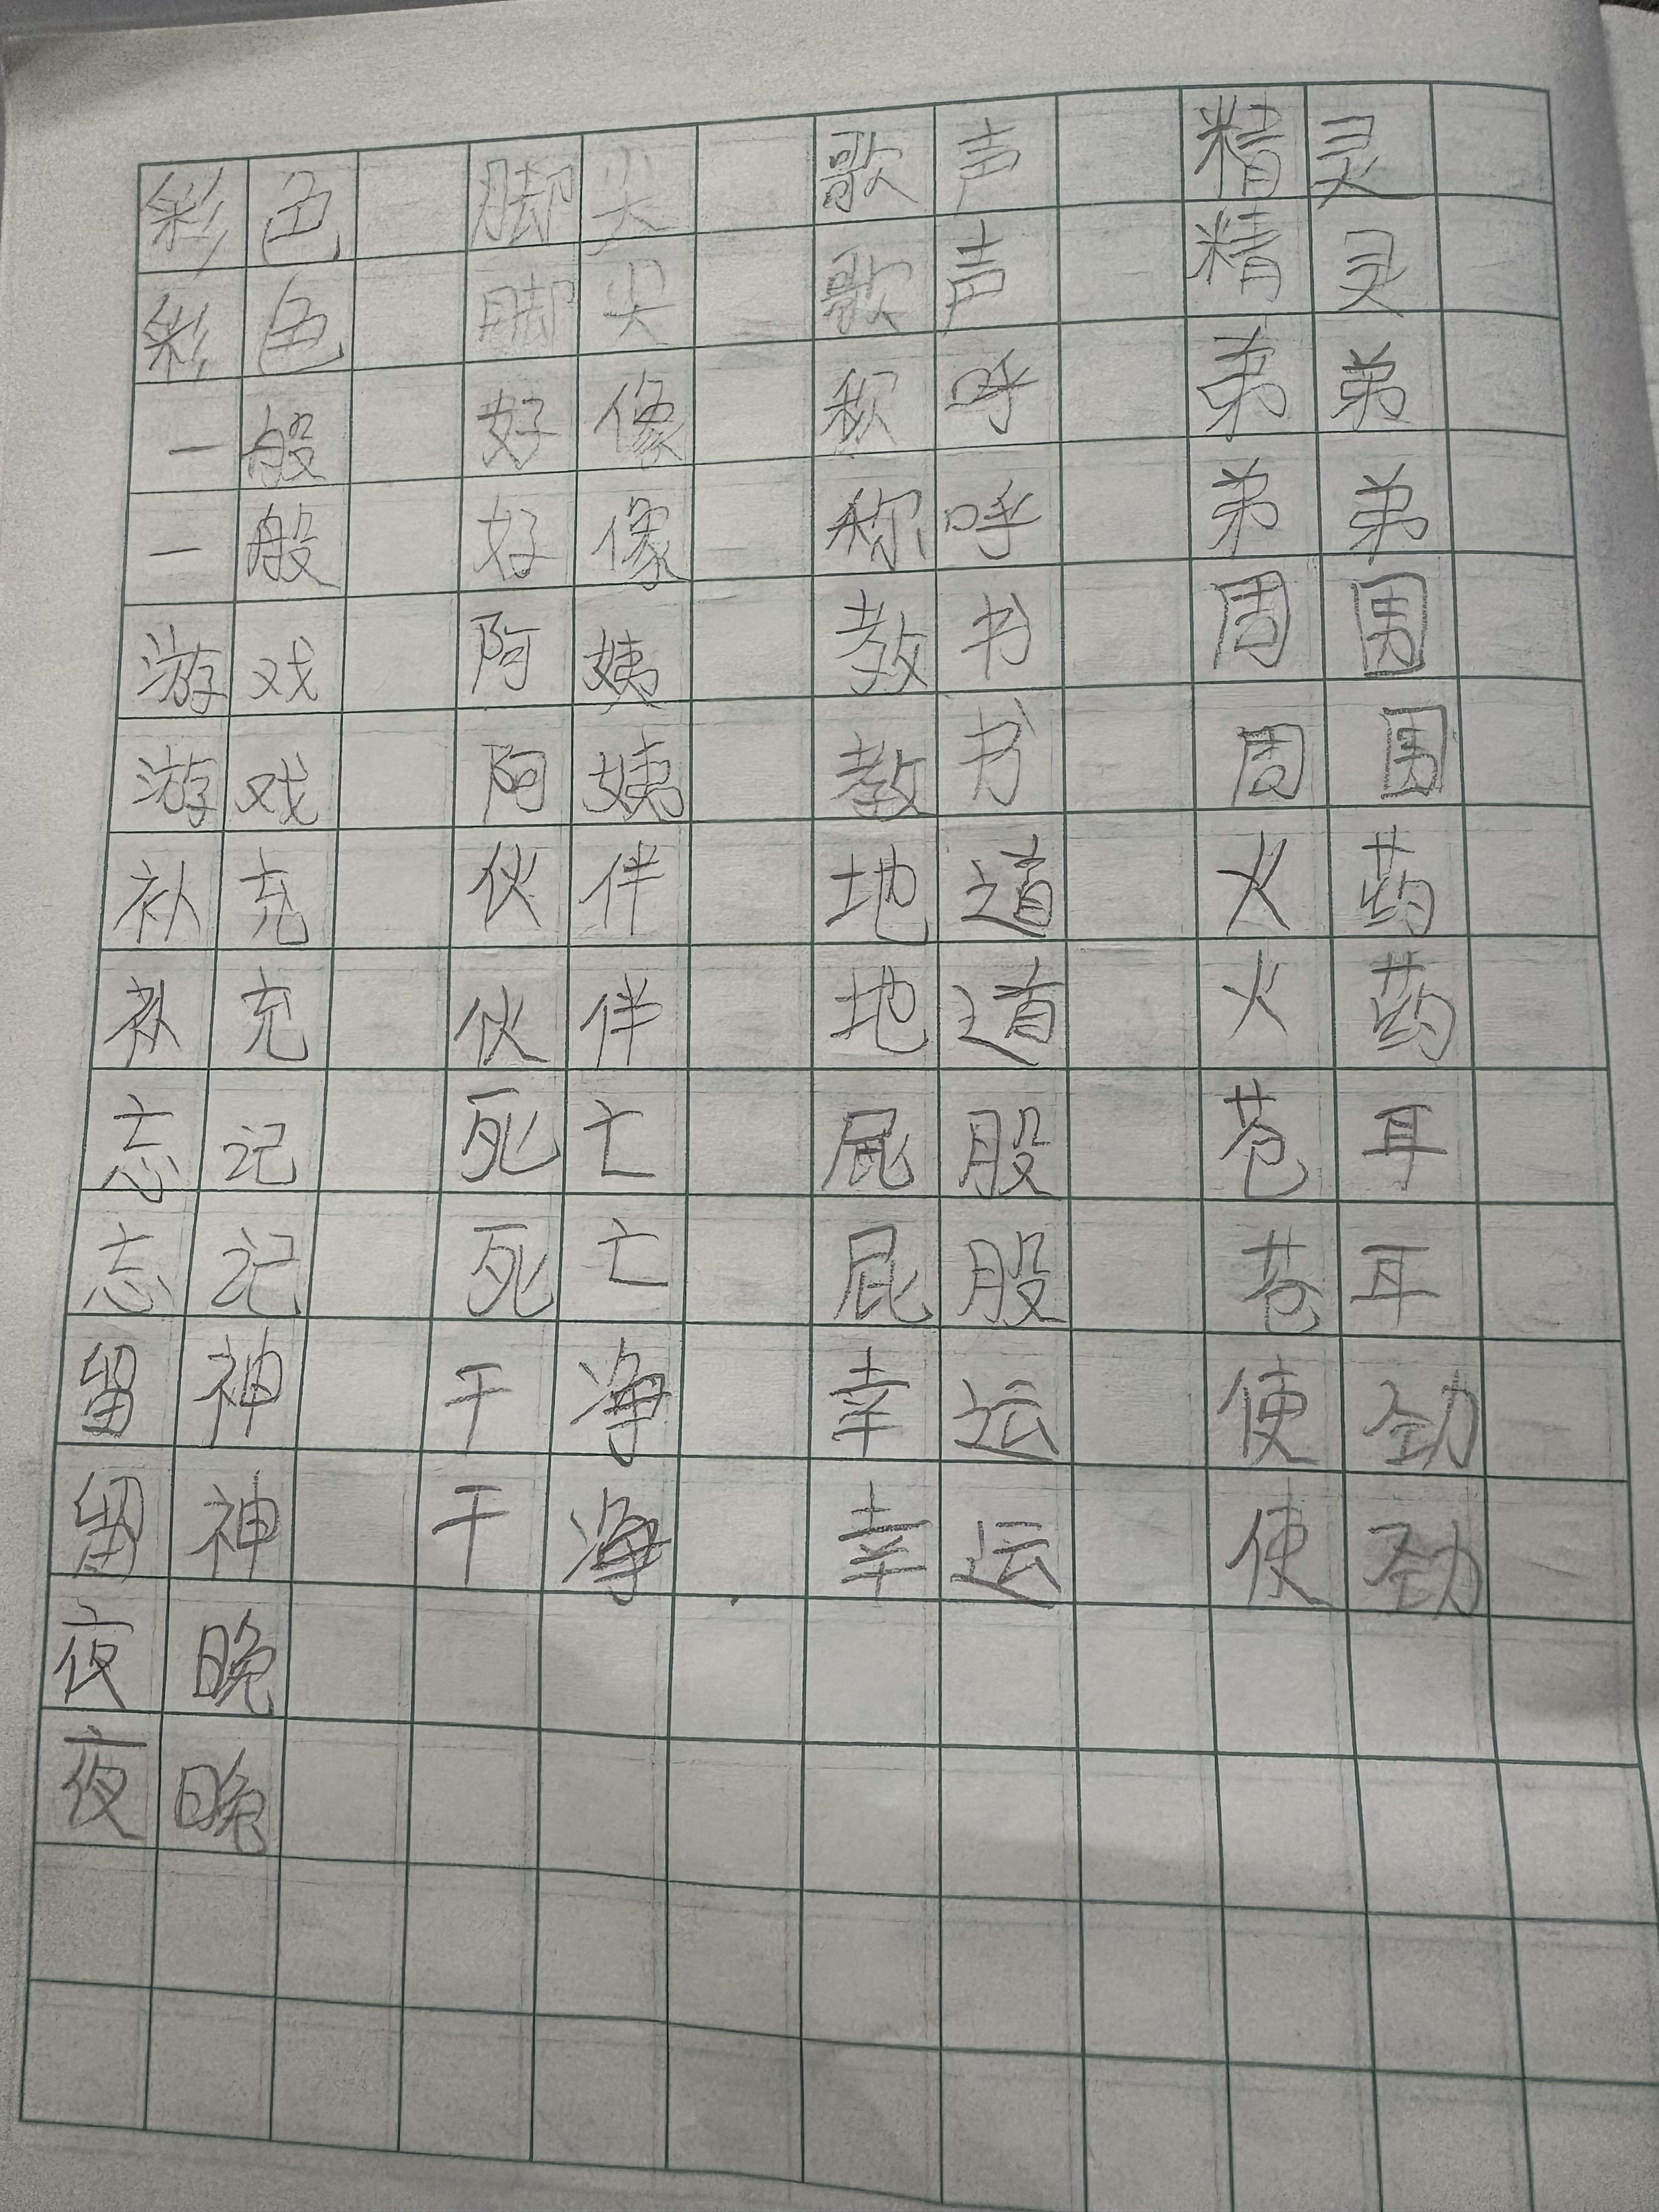 彩色 脚尖 歌声 精灵
彩色 脚尖 歌声 精灵
一般 好像 称呼 弟弟
一般 好像 称呼 弟弟
游戏 阿姨 教书 周围
游戏 阿姨 教书 周围
补充 伙伴 地道 火药
补充 伙伴 地道 火药
志记 死亡 屁股 苍耳
志记 死亡 屁股 苍耳
留神 干净 幸运 使劲
留神 干净 幸运 使劲
夜晚
夜晚